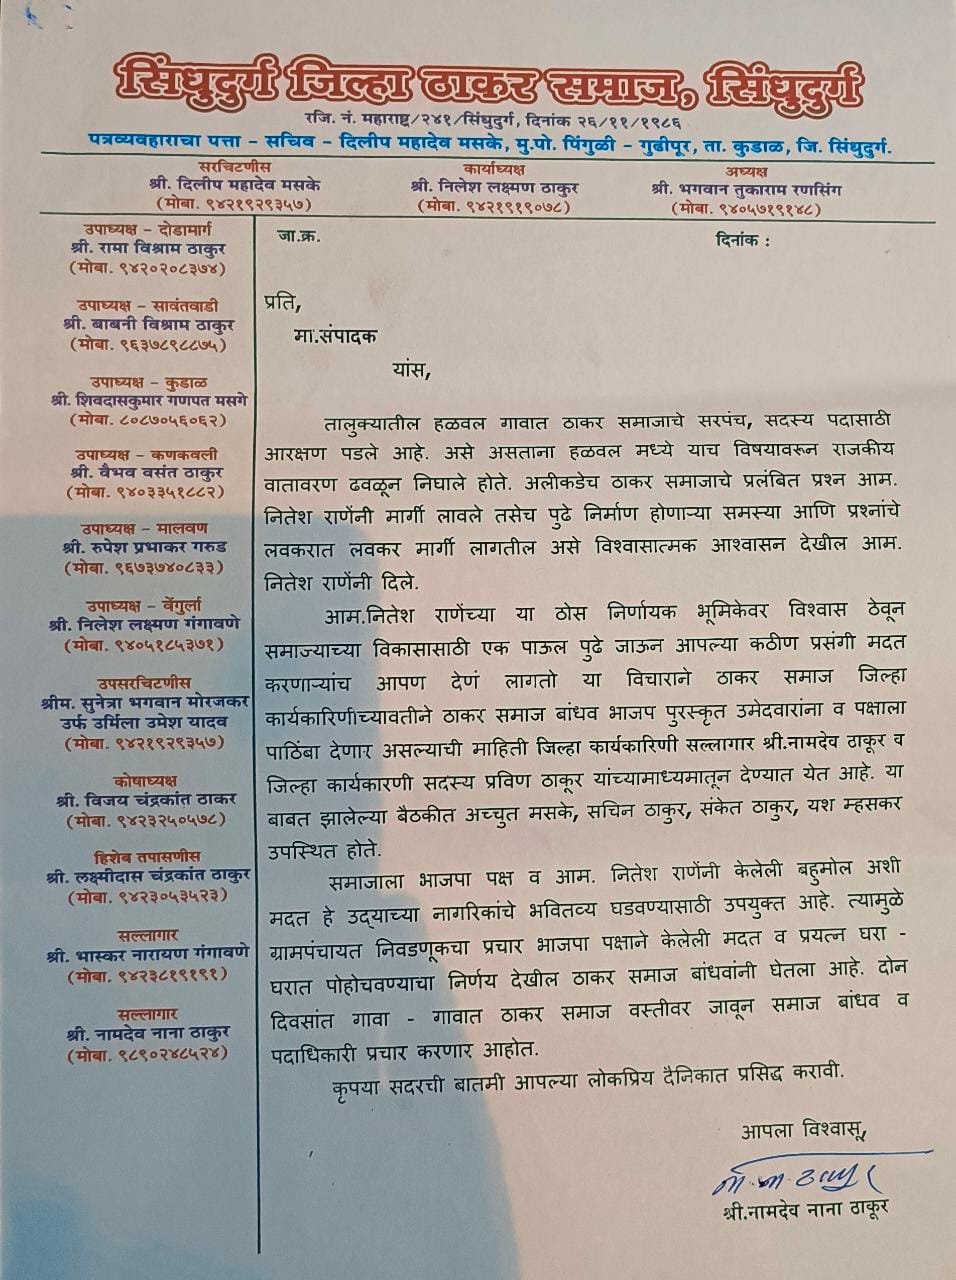 सिंधुदुर्ग जिल्हा ठाकर समाज, सिंधुदुर्ग
रजि. नं. महाराष्ट्र/२४१/सिंधुदुर्ग, दिनांक २६/११/१९८६
पत्रव्यवहाराचा पत्ता – सचिव – दिलीप महादेव मसके, मु.पो. पिंगुळी – गुढीपूर, ता. कुडाळ, जि. सिंधुदुर्ग.
सरचिटणीस
श्री. दिलीप महादेव मसके
(मोबा. ९४२१९२९३५७)
कार्याध्यक्ष
श्री. निलेश लक्ष्मण ठाकुर
(मोबा. ९४२१९१९०७८)
अध्यक्ष
श्री. भगवान तुकाराम रणसिंग
(मोबा. ९४०५७१९१४८)
उपाध्यक्ष – दोडामार्ग
श्री. रामा विश्राम ठाकुर
(मोबा. ९४२०२०८३७४)
उपाध्यक्ष – सावंतवाडी
श्री. बाबनी विश्राम ठाकुर
(मोबा. ९६३७८९८८७५)
उपाध्यक्ष – कुडाळ
श्री. शिवदासकुमार गणपत मसगे
(मोबा. ८०८७०५६०६२)
उपाध्यक्ष – कणकवली
श्री. वैभव वसंत ठाकुर
(मोबा. ९४०३३५१८८२)
उपाध्यक्ष – मालवण
श्री. रुपेश प्रभाकर गरुड
(मोबा. ९६७३७४०८३३)
उपाध्यक्ष – वेंगुर्ला
श्री. निलेश लक्ष्मण गंगावणे
(मोबा. ९४०५१८५३७१)
उपसरचिटणीस
श्रीम. सुनेत्रा भगवान मोरजकर
उर्फ उर्मिला उमेश यादव
(मोबा. ९४२१९२९३५७)
कोषाध्यक्ष
श्री. विजय चंद्रकांत ठाकर
(मोबा. ९४२३२५०५७८)
हिशेब तपासणीस
श्री. लक्ष्मीदास चंद्रकांत ठाकुर
(मोबा. ९४२३०५३५२३)
सल्लागार
श्री. भास्कर नारायण गंगावणे
(मोबा. ९४२३८१९१९१)
सल्लागार
श्री. नामदेव नाना ठाकुर
(मोबा. ९८९०२४८५२४)
जा.क्र.
दिनांक :
प्रति,
मा.संपादक
यांस,
तालुक्यातील हळवल गावात ठाकर समाजाचे सरपंच, सदस्य पदासाठी
आरक्षण पडले आहे. असे असताना हळवल मध्ये याच विषयावरून राजकीय
वातावरण ढवळून निघाले होते. अलीकडेच ठाकर समाजाचे प्रलंबित प्रश्न आम.
नितेश राणेंनी मार्गी लावले तसेच पुढे निर्माण होणाऱ्या समस्या आणि प्रश्नांचे
लवकरात लवकर मार्गी लागतील असे विश्वासात्मक आश्वासन देखील आम.
नितेश राणेंनी दिले.
आम.नितेश राणेंच्या या ठोस निर्णायक भूमिकेवर विश्वास ठेवून
समाज्याच्या विकासासाठी एक पाऊल पुढे जाऊन आपल्या कठीण प्रसंगी मदत
करणाऱ्यांच आपण देणं लागतो या विचाराने ठाकर समाज जिल्हा
कार्यकारिणीच्यावतीने ठाकर समाज बांधव भाजप पुरस्कृत उमेदवारांना व पक्षाला
पाठिंबा देणार असल्याची माहिती जिल्हा कार्यकारिणी सल्लागार श्री.नामदेव ठाकूर व
जिल्हा कार्यकारणी सदस्य प्रविण ठाकूर यांच्यामाध्यमातून देण्यात येत आहे. या
बाबत झालेल्या बैठकीत अच्चुत मसके, सचिन ठाकुर, संकेत ठाकुर, यश म्हसकर
उपस्थित होते.
समाजाला भाजपा पक्ष व आम. नितेश राणेंनी केलेली बहुमोल अशी
मदत हे उद्याच्या नागरिकांचे भवितव्य घडवण्यासाठी उपयुक्त आहे. त्यामुळे
ग्रामपंचायत निवडणूकचा प्रचार भाजपा पक्षाने केलेली मदत व प्रयत्न घरा -
घरात पोहोचवण्याचा निर्णय देखील ठाकर समाज बांधवांनी घेतला आहे. दोन
दिवसांत गावा - गावात ठाकर समाज वस्तीवर जावून समाज बांधव व
पदाधिकारी प्रचार करणार आहोत.
कृपया सदरची बातमी आपल्या लोकप्रिय दैनिकात प्रसिद्ध करावी.
आपला विश्वासू,
श्री.नामदेव नाना ठाकूर